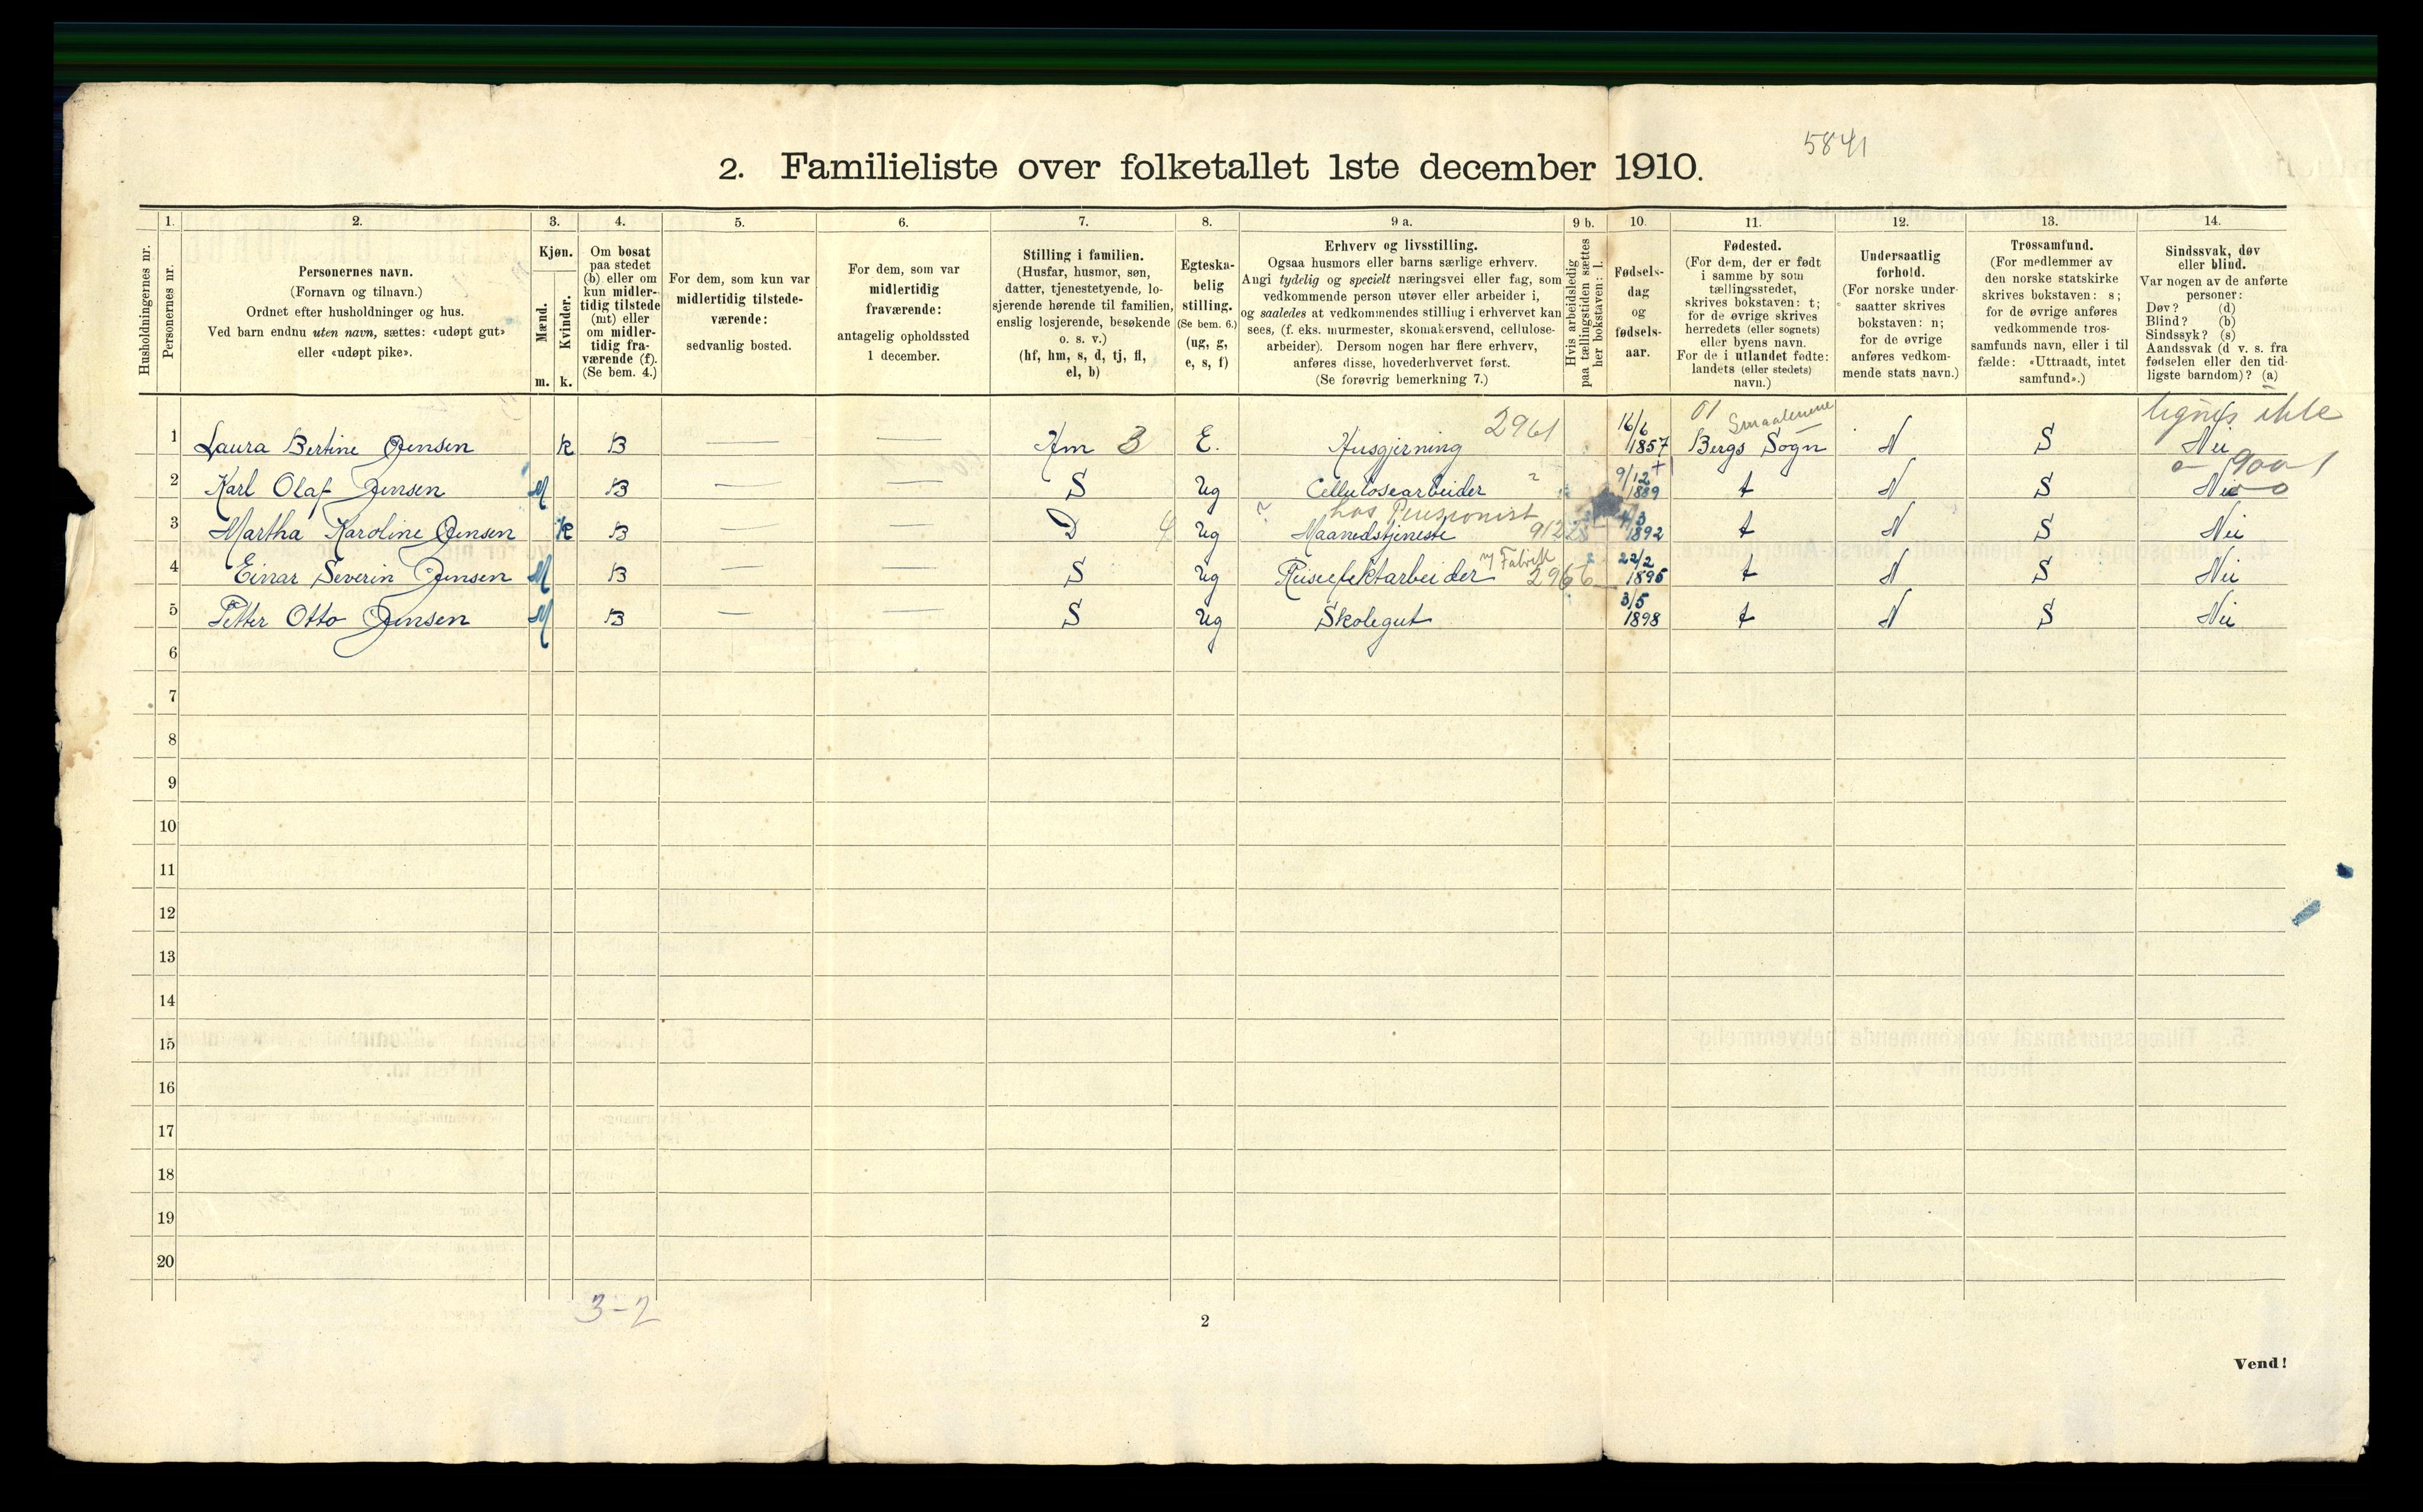 5841
2. Familieliste over folketallet 1ste december 1910.
Husholdningernes nr.
1.
Personernes nr.
2.
Personernes navn.
(Fornavn og tilnavn.)
Ordnet efter husholdninger og hus.
Ved barn endnu uten navn, sættes: «udøpt gut»
eller «udøpt pike».
3.
Kjøn.
Mænd.
m.
Kvinder.
k.
4.
Om bosat
paa stedet
(b) eller om
kun midler-
tidig tilstede
(mt) eller
om midler-
tidig fra-
værende (f).
(Se bem. 4.)
5.
For dem, som kun var
midlertidig tilstede-
værende:
sedvanlig bosted.
6.
For dem, som var
midlertidig
fraværende:
antagelig opholdssted
1 december.
7.
Stilling i familien.
(Husfar, husmor, søn,
datter, tjenestetyende, lo-
sjerende hørende til familien,
enslig losjerende, besøkende
o. s. v.)
(hf, hm, s, d, tj, fl,
el, b)
8.
Egteska-
belig
stilling.
(Se bem. 6.)
(ug, g,
e, s, f)
9 a.
Erhverv og livsstilling.
Ogsaa husmors eller barns særlige erhverv.
Angi tydelig og specielt næringsvei eller fag, som
vedkommende person utøver eller arbeider i,
og saaledes at vedkommendes stilling i erhvervet kan
sees, (f. eks. murmester, skomakersvend, cellulose-
arbeider). Dersom nogen har flere erhverv,
anføres disse, hovederhvervet først.
(Se forøvrig bemerkning 7.)
9 b.
Hvis arbeidsledig
paa tællingstiden sættes
her bokstaven: l.
10.
Fødsels-
dag
og
fødsels-
aar.
11.
Fødested.
(For dem, der er født
i samme by som
tællingsstedet,
skrives bokstaven: t;
for de øvrige skrives
herredets (eller sognets)
eller byens navn.
For de i utlandet fødte:
landets (eller stedets)
navn.)
12.
Undersaatlig
forhold.
(For norske under-
saatter skrives
bokstaven: n;
for de øvrige
anføres vedkom-
mende stats navn.)
13.
Trossamfund.
(For medlemmer av
den norske statskirke
skrives bokstaven: s;
for de øvrige anføres
vedkommende tros-
samfunds navn, eller i til
fælde: «Uttraadt, intet
samfund».)
14.
Sindssvak, døv
eller blind.
Var nogen av de anførte
personer:
Døv? (d)
Blind? (b)
Sindssyk? (s)
Aandssvak (d v. s. fra
fødselen eller den tid-
ligste barndom)? (a)
01 Smaalenene lignes ikke
1 Laura Bertine Jensen k B — — Hm 3 E. Husgjerning 2961 16/6 1857 Bergs Sogn N S Nei
2 Karl Olaf Jensen M B — — S Ug Cellulosearbeider 9/12 1889 t N S Nei
hos Pensionist
3 Martha Karoline Jensen k B — — D Ug Maanedstjeneste 1892 t N S Nei
Fabrik
4 Einar Severin Jensen M B — — S Ug Reiseefektarbeider 22/2 1895 t N S Nei
5 Petter Otto Jensen M B — — S Ug Skolegut 3/5 1898 t N S Nei
6
7
8
9
10
11
12
13
14
15
16
17
18
19
20
3-2
2
Vend!